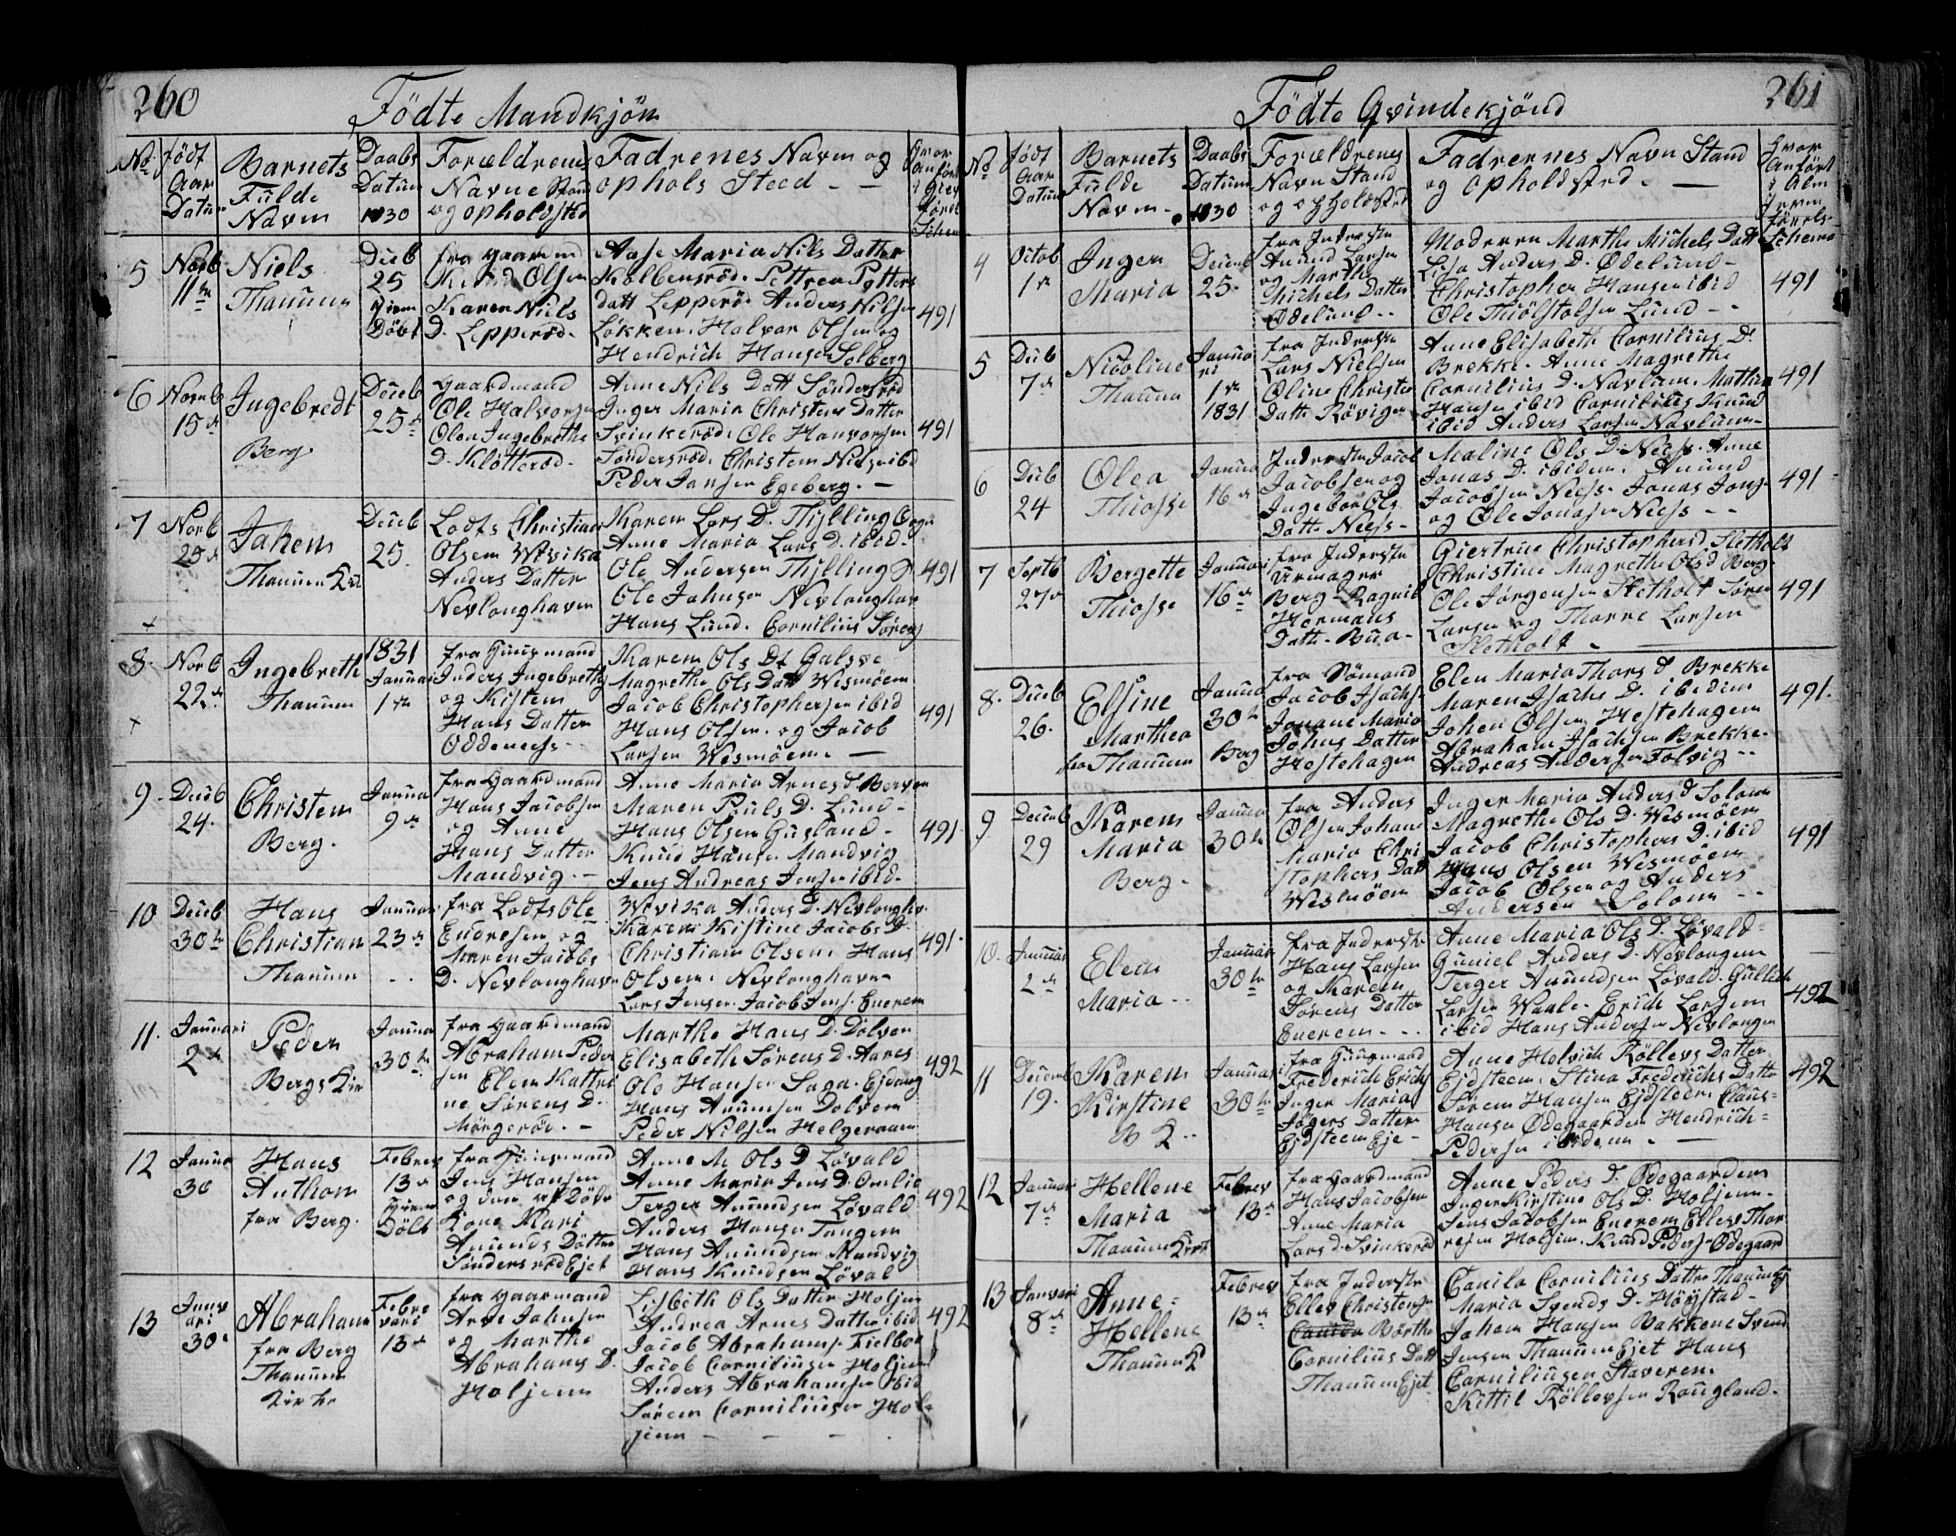 260
Födte Mandkjön
No
født Aar Datum
Barnets Fulde Navn
Daabs Datum 1830
Forældrenes Navne Stand og opholdsted
Fadrenes Navn og ophols Steed
5
Novb 11te
Niels
Thanum
Decb 25
Hjem Döbt
fra Gaardmd
Knud Olsen
Karen Niels
D. Lepperöd
Aase Maria Nils Datter
Kolbensröd. Pettrea Petters
Datt Lepperö. Anders Nilsen
Løkken. Halvar Olsen og
Hendrich Hansen Solberg
491
6
Novb 15de
Ingebredt
Berg
Deceb 25de
Gaardmand
Ole Halvorsen
Olea Ingebreths
D. Klötteröd
Anne Nils Datt Søndersröd
Inger Maria Christens Datter
Svinkeröd. Ole Hanvorsen
Söndersröd. Christen Nielse ibd
Peder Jansen Egeberg.
491
7
Novb 25de
Jahem
Thanum Kir
Deceb 25
Lodts Christian
Olsen Wivika
Anders Datter
Nevlonghaven
Karen Lars D. Thylling
Anne Maria Lars D. ibid
Ole Andersen Thylling
Ole Jahnsen Nevlonghav
Hans Lund. Cornilius Sørens
491
8
Novb 22de
Ingebreth
Thanum
1831
Januari 1te
fra Huusmand
Anders Ingebreths
og Kisten
Hans Datter
Oddeness
Karen Ols Dt Galsve
Magrethe Ols Datt Wesmöen
Jacob Christophersen ibid
Hans Olsen. og Jacob
Larsen Wesmöen.
491
9
Deceb 24
Christen
Berg.
Janua 9de
fra Gaardmand
Hans Jacobsen
og Anne
Hans Datter
Mandvig.
Anne Maria Arnes D. Berven
Maren Pauls D. Lund
Hans Olsen Gusland
Knud Hanse Mandvig
Jens Andreas Jensen ibid.
491
10
Deceb 30te
Hans
Christian
Thanum
Januari 23de
fra Lodts Ole
Endresen og
Maren Jacobs
D. Nevlonghavn
Wivika Anders D. Nevlonghv
Karen Kistine Jacobs D
Christian Olsen. Hans
Olsen. Nevlonghavn
Lars Jensen. Jacob Jens. Enerem
491
11.
Januari 2de
Peder
Bergs Kir
Janua 30te
fra Gaardmand
Abraham Peder
sen Elen Kattri
ne Sørens D.
Mörgeröd.
Marthe Hans D. Dölven
Elisabeth Sörens D. Aares
Ole Hansen Saga. Ejdang
Hans Anunsen Dolven
Peder Nilsen Helgeraaen
492
12
Janua 30
Hans
Anthon
fra Berg.
Febrer 13de
Hjemme Döbt
fra Huusmand
Jens Hansen
Kone Mari
Anunds Datter
Söndersröd Ejet
Anne M. Ols D Lövald
Anne Maria Jens D. Omlie
Terger Anundsen Lövald
Anders Hanse Tangen
Hans Anundsen Mandvig
Hans Knudsen Löval
492
13
Janu ari 30
Abraham
fra Berg
Thanum
Kirke
Febre vari 13de
fra Gaardmand
Arve Jahnsen
og Marthe
Abrahams D.
Holjem
Lisbeth Ols Datter Holjem
Andrea Arnes Datter ibid
Jacob Abrahams Fielboe
Jacob Cornilliusen Holjem
Anders Abrahamsen ibid
Sören Corniliusen Hol
jem
492
261
Födte Qvindekjönd
No
født Aar Datum
Barnets Fulde Navn
Daabs Datum 1830
Forældrenes Navn Stand og opholdsted
Fadrernes Navn Stand og Opholdsted.
Hvor anfört i Alm Jevn förels Schema
4
Octob 1te
Inger
Maria
Decemb 25
fra Inderste
Anund Larsen
og Marthe
Michels Datter
Ødelund
Moderen Marthe Michels Datt
Lisa Anders D. Ødelund
Christopher Hansen ibid
Ole Thiölstolsen Lund
491
5
Deceb 7de
Nicoline
Thanum
Janua ri 1te 1831
fra Inderste
Lars Nielsen
Oline Christen
Datt. Rövigen
Anne Elisabeth Cornilius D.
Brekke. Anne Magrethe
Cornilius D. Navlum. Mathias
Hansen ibid Cornilius Knud
ibid Anders Larsen Navlum
491
6
Deceb 24
Olea
Thiosse
Janua 16de
Inderste Jacob
Jacobsen og
Ingebor Ols
Datt. Neess
Maline Ols D. Neess. Anne
Jonas D. ibidem. Anund
Jacobsen Neess. Jonas Jons
og Ole Jonasen Neess
491
7
Septb 27de
Bergette
Thiosse
Januari 16de
fra Inderste
Urmager
Berg. Ragnil
Hermans
Datt. Bua
Giertrue Christophers D. Sletholt
Christine Magrethe Ols D. Berg
Ole Jörgensen Sletholt Sören
Larsen og Thorre Larsen
Sletholt
491
8.
Deceb 26.
Elsine
Marthea
fra Thanum
Janua 30te
Berg
fra Sömand
Jacob Isachs
Johane Maria
Johns Datter
Hestehagen
Elen Maria Thors D Brekke
Maren Isachs D. ibidem
Johen Olsen Hestehagem
Abraham Isachsen Brekke
Andreas Andersen Folvig
491.
9
Decemb 29
Karen
Maria
Berg.
Janua 30te
fra Anders
Olsen Johan
Maria Chri
stophers Dat
Wesmöen
Inger Maria Anders D Solom
Magrethe Ols D. Wesmöen
Jacob Christophers D. ibid
Hans Olsen Wesmöen
Jacob Olsen og Anders
Andersen Solom
491
10.
Januar 2de
Elen
Maria
Januar 30te
fra Inderste
Hans Larsen
og Maren
Sörens Datter
Enerem
Anne Maria Ols D. Lövald
Guniel Anders D. Nevlongen
Terger Anundsen Lövald. Gullich
Larsen Waale. Erich Larsen
ibid Hans Andersen Nevlongen
492
11
Decemb 19.
Karen
Kirstine
B K
Januari 30te
fra Huusmand
Frederich Erichs
Inger Maria
Jögers Datter
Ejdsteen Eje
Anne Helvich Röllevs Datter
Ejdsteen. Stina Frederichs Datte
Sören Hansen Ejdsteen. Claus
Hansen Ødegaarden Hendrich
Pedersen ibidem.
492
12
Januari 7de
Hellene
Maria
Thanum Kirk
Febrer 13de
fra Gaardmand
Hans Jacobsen
Anne Maria
Lars D. Svinkeröd
Anne Peders D. Ødegaarden
Inger Kirstine Ols D. Holjem
Jens Jacobsen Enerem Ellev Thor
resen Holjem. Knud Peders Ødegaard
13
Januari 8de
Anne
Hellene
Thanum K
Febrer 13de
fra Inderste
Ellev Christens
Börthe
Cornilius Datt
Thanum Ejet
Canila Cornilius Datter Thanum Ej
Maria Svends D. Höystad
Jahem Hansen Bakkene Svend
Jensen Thanum Ejet Hans
Corniliusen Staverem
Kittil Röllevsen Rougland